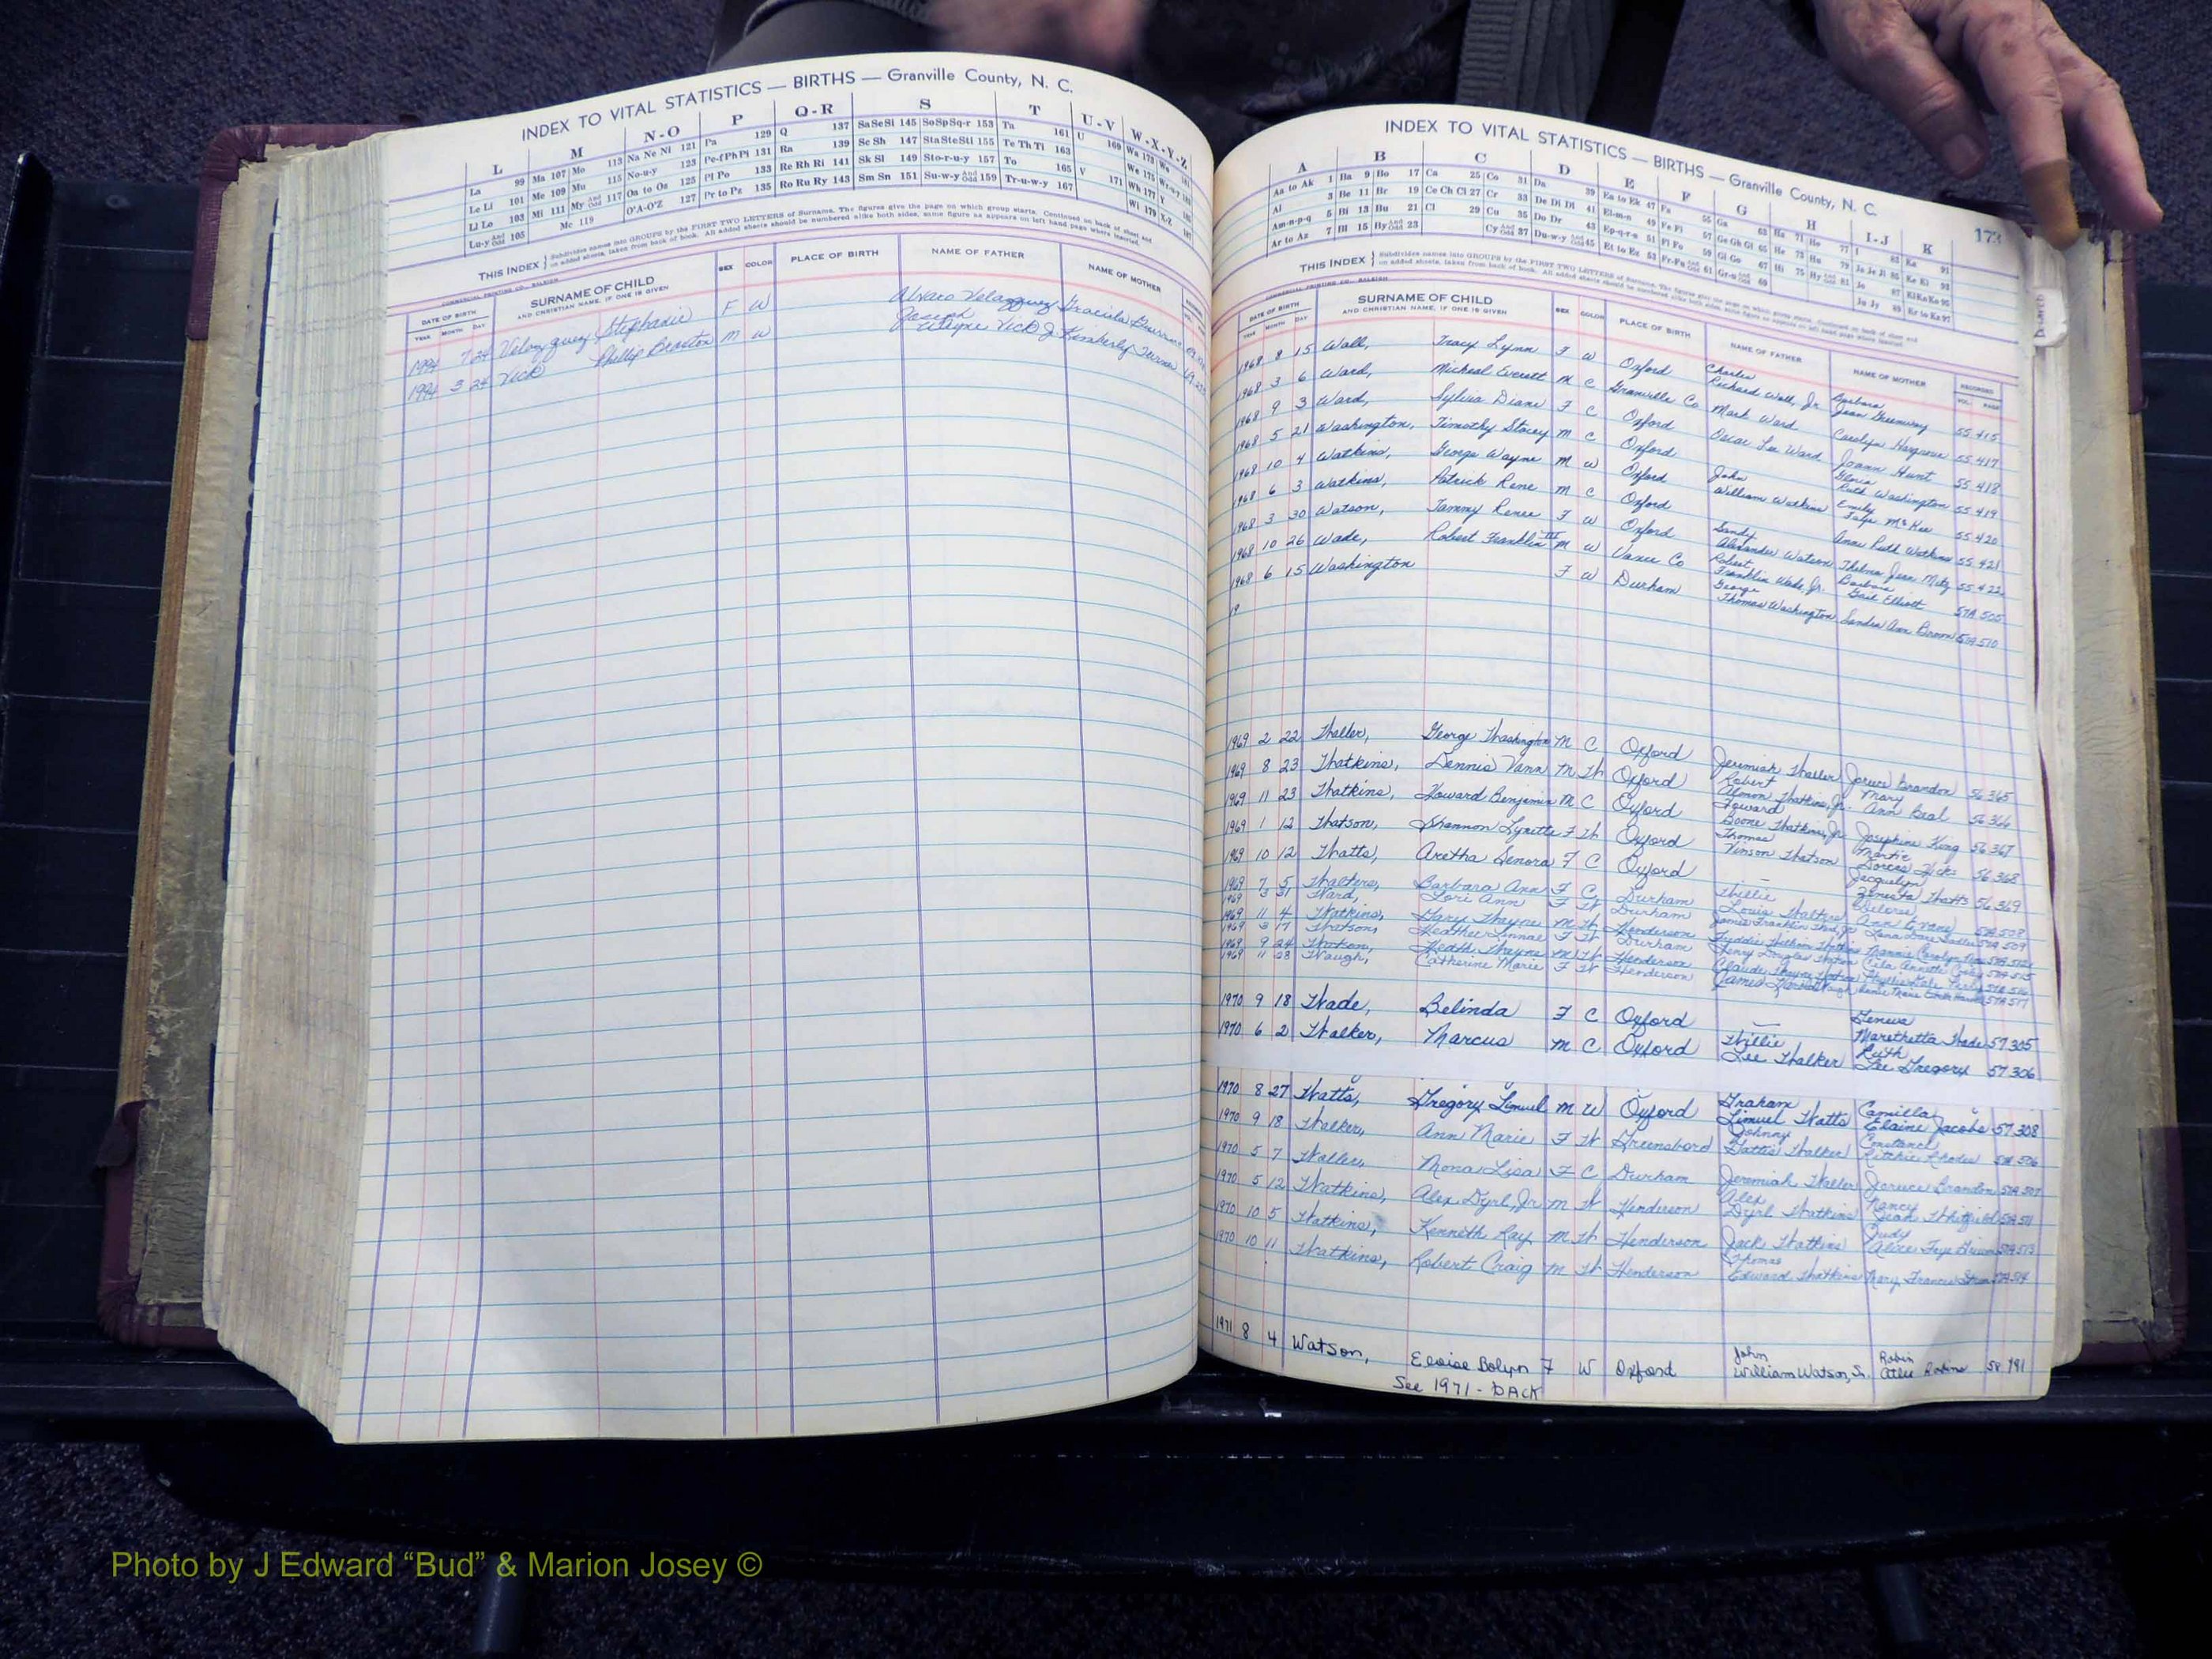 INDEX TO VITAL STATISTICS — BIRTHS — Granville County, N. C.
L M N-O P Q-R S T U-V W-X-Y-Z
La 99 Ma 107 Mo 113 Na Ne Ni 121 Pa 129 Q 137 SaSeSi 145 SoSpSq-r 153 Ta 161 U 169 Wa 173
Le Li 101 Me 109 Mu 115 No-u-y 123 Pe-f Ph Pi 131 Ra 139 Sc Sh 147 Sta Ste Sti 155 Te Th Ti 163 We 175
Ll Lo 103 Mi 111 My And Odd 117 Oa to Os 125 Pl Po 133 Re Rh Ri 141 Sk Sl 149 Sto-r-u-y 157 To 165 V 171 Wh 177 Y
Lu-y And Odd 105 Mc 119 O'A-O'Z 127 Pr to Pz 135 Ro Ru Ry 143 Sm Sn 151 Su-w-y And Odd 159 Tr-u-w-y 167 Wi 179 X-Z
THIS INDEX { Subdivides names into GROUPS by the FIRST TWO LETTERS of Surname. The figures give the page on which group starts. Continued on back of sheet and
on added sheets, taken from back of book. All added sheets should be numbered alike both sides, same figure as appears on left hand page where inserted.
COMMERCIAL PRINTING CO., RALEIGH
DATE OF BIRTH SURNAME OF CHILD SEX COLOR PLACE OF BIRTH NAME OF FATHER NAME OF MOTHER
YEAR MONTH DAY AND CHRISTIAN NAME, IF ONE IS GIVEN
1994 7 24 Velazquez Stephanie F W Alvaro Velazquez Graciela
1994 3 24 Vick Phillip Braxton M W Joseph Wayne Vick Jr Kimberly Turner
INDEX TO VITAL STATISTICS — BIRTHS — Granville County, N. C.
173
A B C D E F G H I-J K
Aa to Ak 1 Ba 9 Bo 17 Ca 25 Co 31 Da 39 Ea to Ek 47 Fa 55 Ga 63 Ha 71 Ho 77 I 83 Ka 91
Al 3 Be 11 Br 19 Ce Ch Ci 27 Cr 33 De Di Dl 41 El-m-n 49 Fe Fi 57 Ge Gh Gi 65 He 73 Hu 79 Ja Je Ji 85 Ke Ki 93
Am-n-p-q 5 Bi 13 Bu 21 Cl 29 Cu 35 Do Dr 43 Ep-q-r-s 51 Fl Fo 59 Gl Go 67 Hi 75 Hy And Odd 81 Jo 87 Kl Kn Ko 95
Ar to Az 7 Bl 15 By And Odd 23 Cy And Odd 37 Du-w-y And Odd 45 Et to Ez 53 Fr-Fu And Odd 61 Gr-u And Odd 69 Ju Jy 89 Kr to Kz 97
THIS INDEX { Subdivides names into GROUPS by the FIRST TWO LETTERS of Surname. The figures give the page on which group starts. Continued on back of sheet and
on added sheets, taken from back of book. All added sheets should be numbered alike both sides, same figure as appears on left hand page where inserted.
COMMERCIAL PRINTING CO., RALEIGH
DATE OF BIRTH SURNAME OF CHILD SEX COLOR PLACE OF BIRTH NAME OF FATHER NAME OF MOTHER RECORDED
YEAR MONTH DAY AND CHRISTIAN NAME, IF ONE IS GIVEN VOL. PAGE
1968 8 15 Wall, Tracy Lynn F W Oxford Charles Richard Wall, Jr. Barbara Jean Greenway 55 415
1968 3 6 Ward, Micheal Everett M C Granville Co Mark Ward Carolyn Hargrove 55 417
1968 9 3 Ward, Sylvia Diane F C Oxford Oscar Lee Ward Joann Hunt 55 418
1968 5 21 Washington, Timothy Stacey M C Oxford Gloria Ruth Washington 55 419
1968 10 4 Watkins, George Wayne M W Oxford John William Watkins Emily Faye McKee 55 420
1968 6 3 Watkins, Patrick Rene M C Oxford Anne Ruth Watkins 55 421
1968 3 30 Watson, Tammy Renee F W Oxford Sandy Alexander Watson Thelma Jean Metz 55 422
1968 10 26 Wade, Robert Franklin III M W Vance Co Robert Franklin Wade, Jr. Barbara Gail Elliott 57A 505
1968 6 15 Washington F W Durham George Thomas Washington Sandra Ann Brown 57A 510
19
1969 2 22 Waller, George Washington M C Oxford Jeremiah Waller Joruce Brandon 56 365
1969 8 23 Watkins, Dennis Vann M W Oxford Robert Almon Watkins, Jr. Mary Ann Beal 56 366
1969 11 23 Watkins, Howard Benjamin M C Oxford Howard Boone Watkins, Jr Josephine King 56 367
1969 1 12 Watson, Shannon Lynette F W Oxford Thomas Vinson Watson Martie Dorcas Hicks 56 368
1969 10 12 Watts, Aretha Senora F C Oxford — Jacquelyn Zenesta Watts 56 369
1969 7 5 Walters, Barbara Ann F C Durham Willie Louis Walters Delores Ann Evans 57A 508
1969 3 31 Ward, Lori Ann F W Durham James Franklin Ward, Jr 57A 509
1969 11 4 Watkins, Gary Wayne M W Henderson Freddie William Watkins Nannie Carolyn
1969 3 17 Watson, Heather Linnae F W Durham Henry Douglas Watson Lila Annette 57A 515
1969 9 24 Watson, Keith Wayne M W Henderson Claude Wayne Watson Phyllis Gale 57A 516
1969 11 28 Waugh, Catherine Marie F W Henderson James Waugh 57A 517
1970 9 18 Wade, Belinda F C Oxford — Geneva Marethetta Wade 57 305
1970 6 2 Walker, Marcus M C Oxford Willie Lee Walker Ruth Lee Gregory 57 306
1970 8 27 Watts, Gregory Limuel M W Oxford Graham Limuel Watts Camilla Elaine Jacobs 57 308
1970 9 18 Walker, Ann Marie F W Greensboro Johnny Gattis Walker Constance Ritchie Rhodes 57A 506
1970 5 7 Waller, Mona Lisa F C Durham Jeremiah Waller Joruce Brandon 57A 507
1970 5 12 Watkins, Alex Dyrl, Jr M W Henderson Alex Dyrl Watkins Nancy Jean 57A 511
1970 10 5 Watkins, Kenneth Ray M W Henderson Jack Watkins Judy Alice Faye 57A 513
1970 10 11 Watkins, Robert Craig M W Henderson Thomas Edward Watkins Mary Frances 57A 514
1971 8 4 Watson, Eloise Bolyn F W Oxford John William Watson, Sr. Robin 58 791
See 1971 - BACK
Photo by J Edward “Bud” & Marion Josey ©